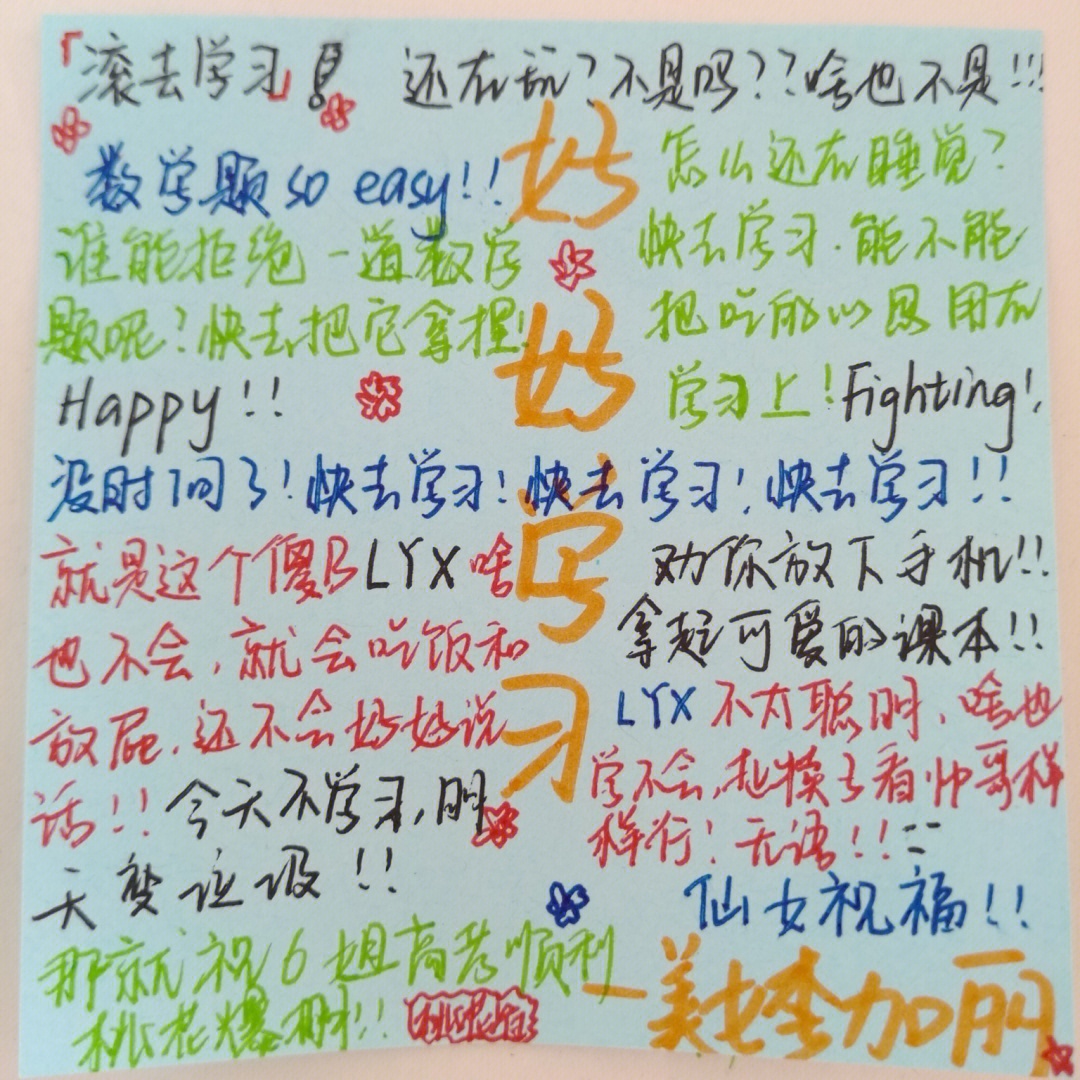 「滚去学习」!
还在玩?不是吗??啥也不是!!!
数学题so easy!!
谁能拒绝一道数学
题呢?快去把它拿捏!
Happy!!
怎么还在睡觉?
快去学习.能不能
把吃的心思用在
学习上!Fighting!
好
好
学
习
没时间了!快去学习!快去学习!快去学习!!
就是这个傻B LYX 啥
也不会,就会吃饭和
放屁,还不会好好说
话!!
今天不学习,明
天变垃圾!!
劝你放下手机!!
拿起可爱的课本!!
LYX不太聪明,啥也
学不会,
看帅哥样
样行!无语!!
仙女祝福!!
那就祝6姐高考顺利
桃花爆棚!!
加丽